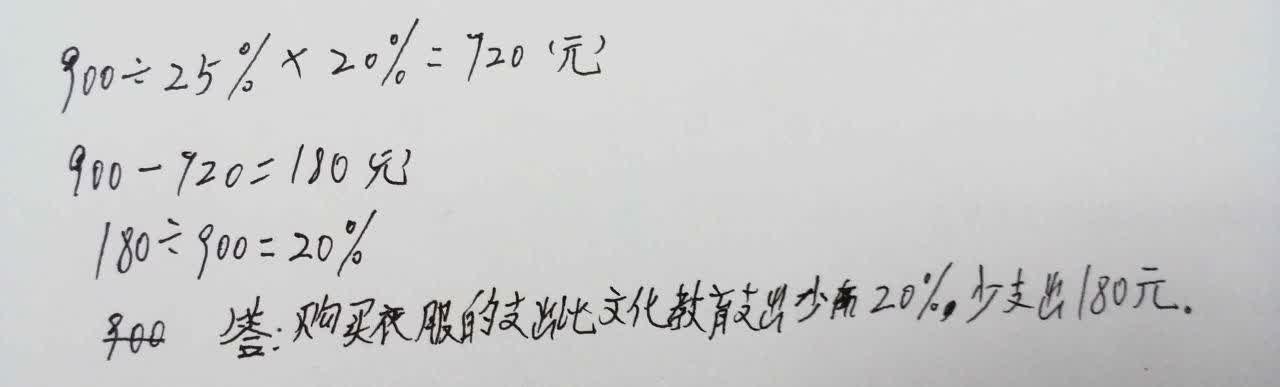 900÷25%×20%=720(元)
900-720=180元
180÷900=20%
900 答:购买衣服的支出比文化教育支出少 20%,少支出180元.